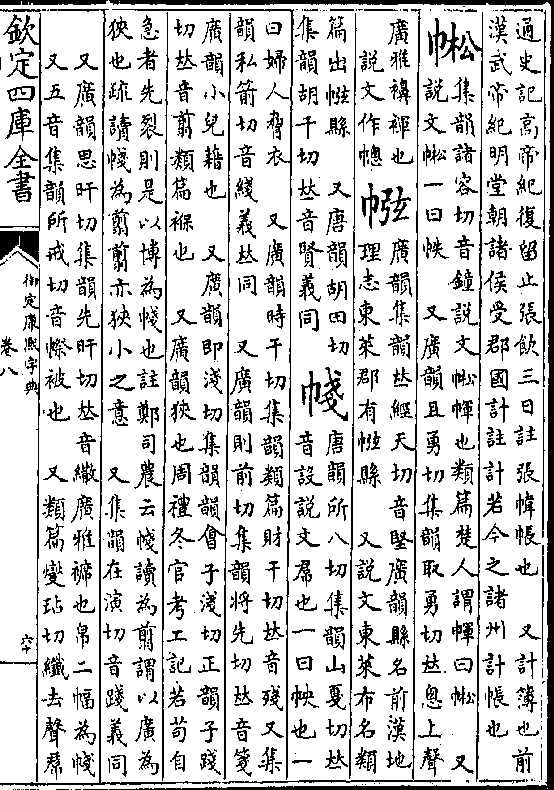 通史記高帝紀復留止張飲三日註張幃帳也　又計簿也前
漢武帝紀明堂朝諸侯受郡國計註計若今之諸州計帳也
㡆　集韻諸容切音鐘說文㡆幝也類篇楚人謂幝曰㡆　又
說文㡆一曰帙　又廣韻且勇切集韻取勇切𠀤悤上聲
廣雅褠襌也
說文作幒
㡉　廣韻集韻𠀤經天切音堅廣韻縣名前漢地
理志東萊郡有㡉縣　又說文東萊布名類
篇出㡉縣　又唐韻胡田切
集韻胡千切𠀤音賢義同
帴　唐韻所八切集韻山戛切𠀤
音設說文帬也一曰帗也一
曰婦人脅衣　又廣韻昨干切集韻類篇財干切𠀤音殘又集
韻私箭切音綫義𠀤同　又廣韻則前切集韻將先切𠀤音箋
廣韻小兒藉也　又廣韻即淺切集韻韻會子淺切正韻子踐
切𠀤音翦類篇褓也　又廣韻狹也周禮冬官考工記若苟自
急者先裂則是以博為帴也註鄭司農云帴讀為翦謂以廣為
狹也疏讀帴為翦翦亦狹小之意　又集韻在演切音踐義同
又廣韻思旰切集韻先旰切𠀤音繖廣雅䘸也帛二幅為帴
又五音集韻所戒切音㡜被也　又類篇孌玷切纖去聲帬
欽定四庫全書
御定康熙字典
卷八
六十